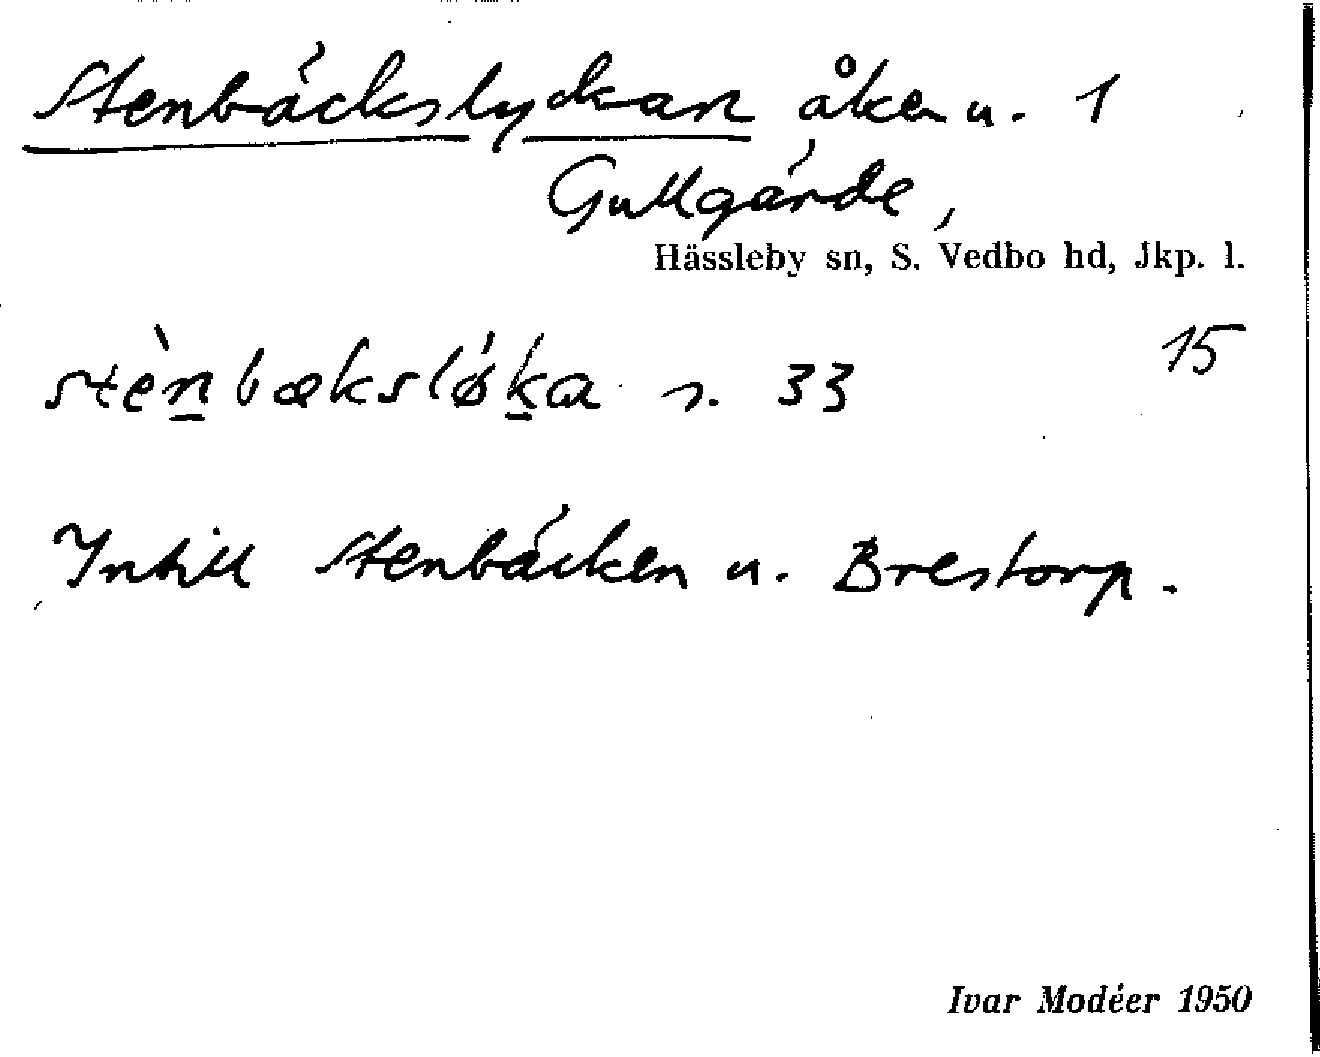 Stenbäckslyckan åker u. 1
Gullgärde,
Hässleby sn, S. Vedbo hd, Jkp. l.
15
stènbækslǿka s. 33
Intill Stenbäcken u. Brestorp.
Ivar Modéer 1950